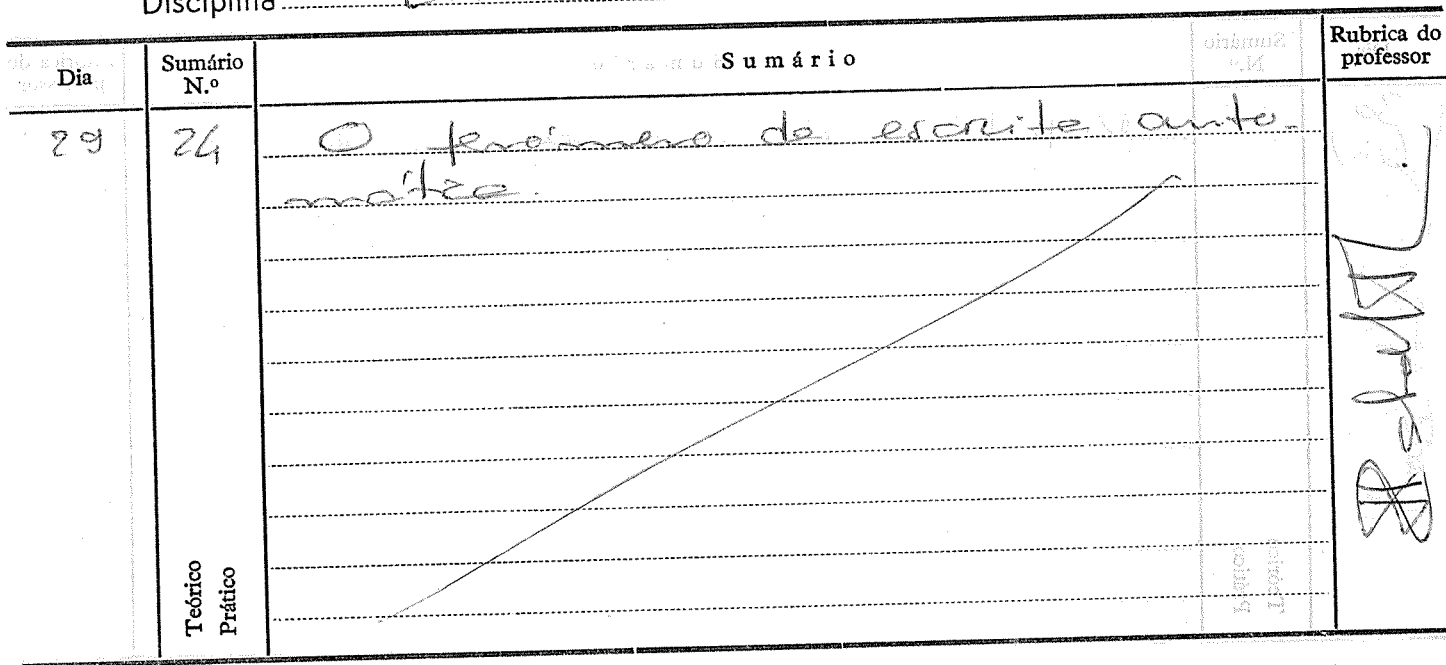 Disciplina
Dia
Sumário N.º
Sumário
Rubrica do professor
29
24
O fenómeno da escrita auto-
mática.
Teórico
Prático